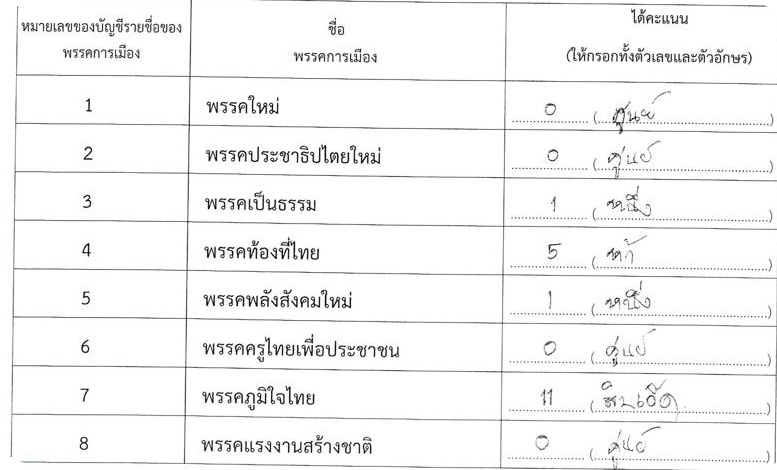 หมายเลขของบัญชีรายชื่อของ ชื่อ ได้คะแนน
พรรคการเมือง พรรคการเมือง (ให้กรอกทั้งตัวเลขและตัวอักษร)
1 พรรคใหม่ 0 (ศูนย์)
2 พรรคประชาธิปไตยใหม่ 0 (ศูนย์)
3 พรรคเป็นธรรม 1 (หนึ่ง)
4 พรรคท้องที่ไทย 5 (ห้า)
5 พรรคพลังสังคมใหม่ 1 (หนึ่ง)
6 พรรคครูไทยเพื่อประชาชน 0 (ศูนย์)
7 พรรคภูมิใจไทย 11 (สิบเอ็ด)
8 พรรคแรงงานสร้างชาติ 0 (ศูนย์)